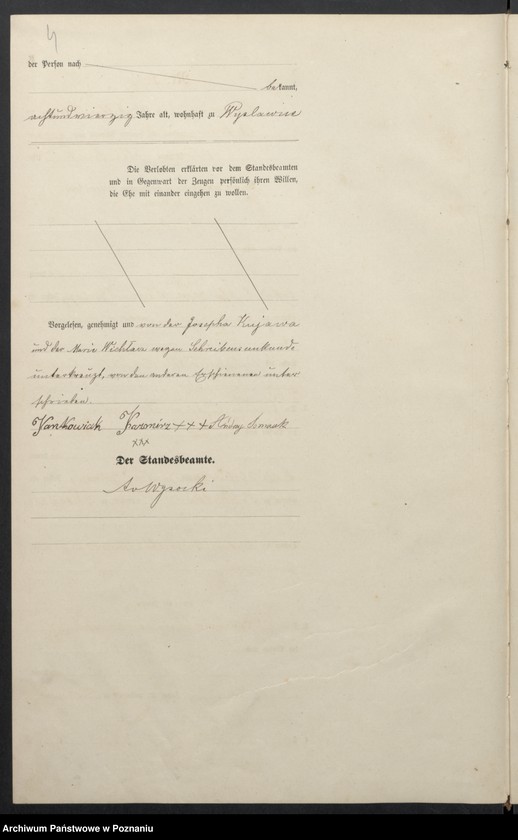 4
der Person nach
bekannt,
achtundvierzig Jahre alt, wohnhaft zu
Die Verlobten erklärten vor dem Standesbeamten
und in Gegenwart der Zeugen persönlich ihren Willen,
die Ehe mit einander eingehen zu wollen.
Vorgelesen, genehmigt und von der Josepha Kujawa
und der Marie wegen Schreibensunkunde
unterkreuzt, von den anderen Erschienenen unter
schrieben.
Jankowiak Kazmierz +++ Nowak
xxx
Der Standesbeamte.
Archiwum Państwowe w Poznaniu